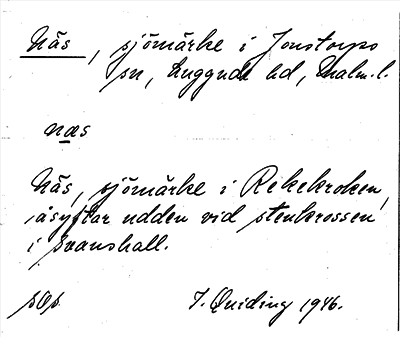 Näs, sjömärke i Jonstorps
sn, Luggude hd, Malm. l.
næs
Näs, sjömärke i Rekekroken,
åsyftar udden vid stenkrossen
i Svanshall.
sOs J. Quiding 1946.